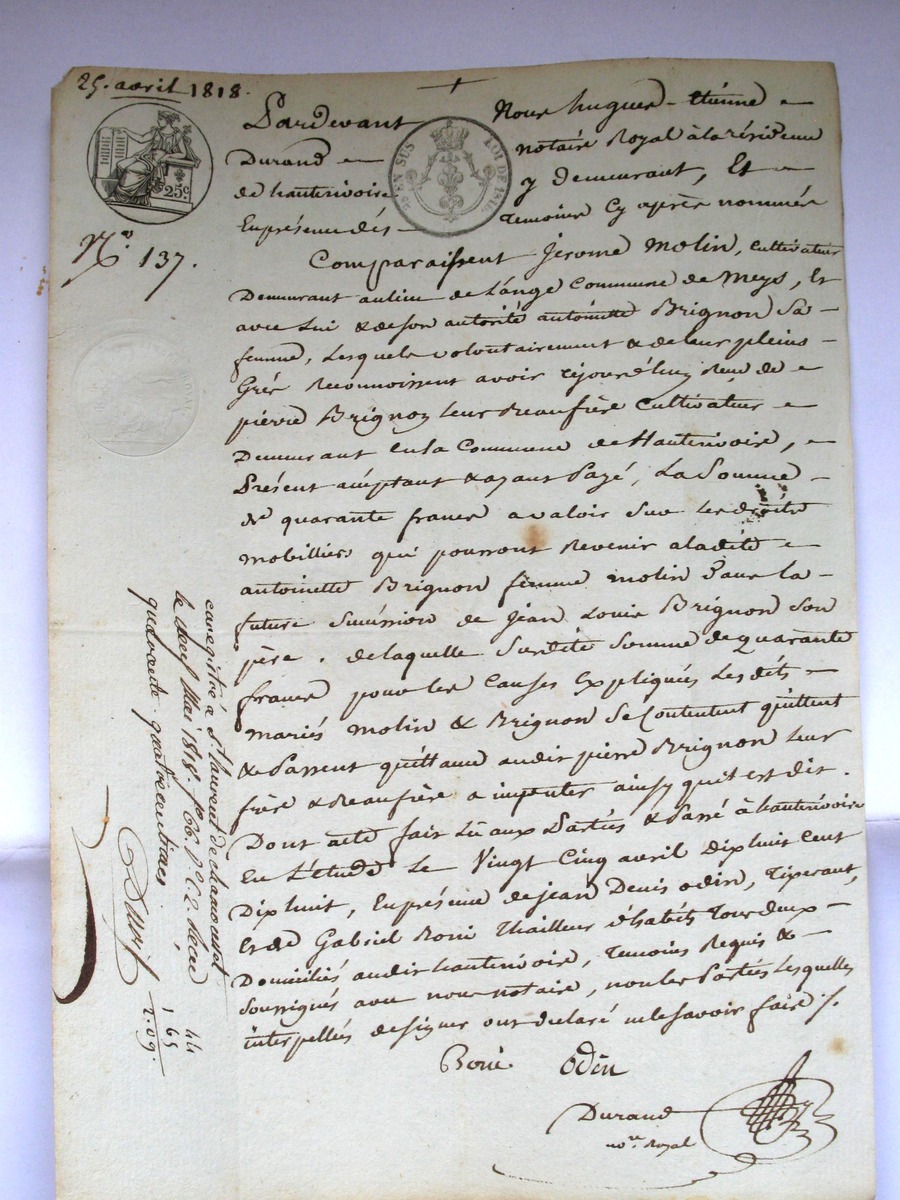 25. avril 1818.
Pardevant Nous hugues - étienne
Durand notaire Royal à la résidence
de hauterivoire y demeurant, Et
En présence des témoins Cy après nommés
25c
EN SUS
LOI DE 1816
N.º 137.
Comparaissent Jerome Molin, cultivateur
Demeurant au lieu de Lange Commune de Meys, Et
avec Lui & de son autorité antoinette Brignon Sa
femme, Lesquels volontairement & de leur pleins
Grés Reconnoissent avoir çejourd'huy Reçu de
pierre Brignon leur Beaufrère Cultivateur
Demeurant En la Commune de Hauterivoire,
Présent acceptant & ayant Payé, La Somme
de quarante francs a valoir Sur Les droits
mobilliers qui pourront Revenir a ladite
antoinette Brignon femme molin Dans la
future Succession de Jean Louis Brignon Son
père. de laquelle Susdite Somme de quarante
francs pour les Causes Expliquées Les dits
mariés Molin & Brignon Se Contentent quittent
& Passent quittance audit pierre Brignon leur
frère & Beaufrère a imputer ainsy qu'il est dit.
Dont acte fait Lu aux Parties & Passé à hauterivoire
En L'étude Le Vingt Cinq avril Dix huit Cent
Dix huit, En présence de jean Denis Odin, Tisserant,
Et de Gabriel Boni Thailleur d'habits Tous deux
Domiciliés audit hauterivoire, Temoins Requis &
Soussignés avec nous notaire, non les Parties Lesquelles
interpellés de signer ont déclaré ne le savoir faire ./.
Boni Odin
Durand
no.re Royal
enregistré à S.t Laurent de chamousset
le deux Mai 1818. f.o 66. r.o C. 2. Reçu
quarante-quatre centimes
44
1 65
2.09